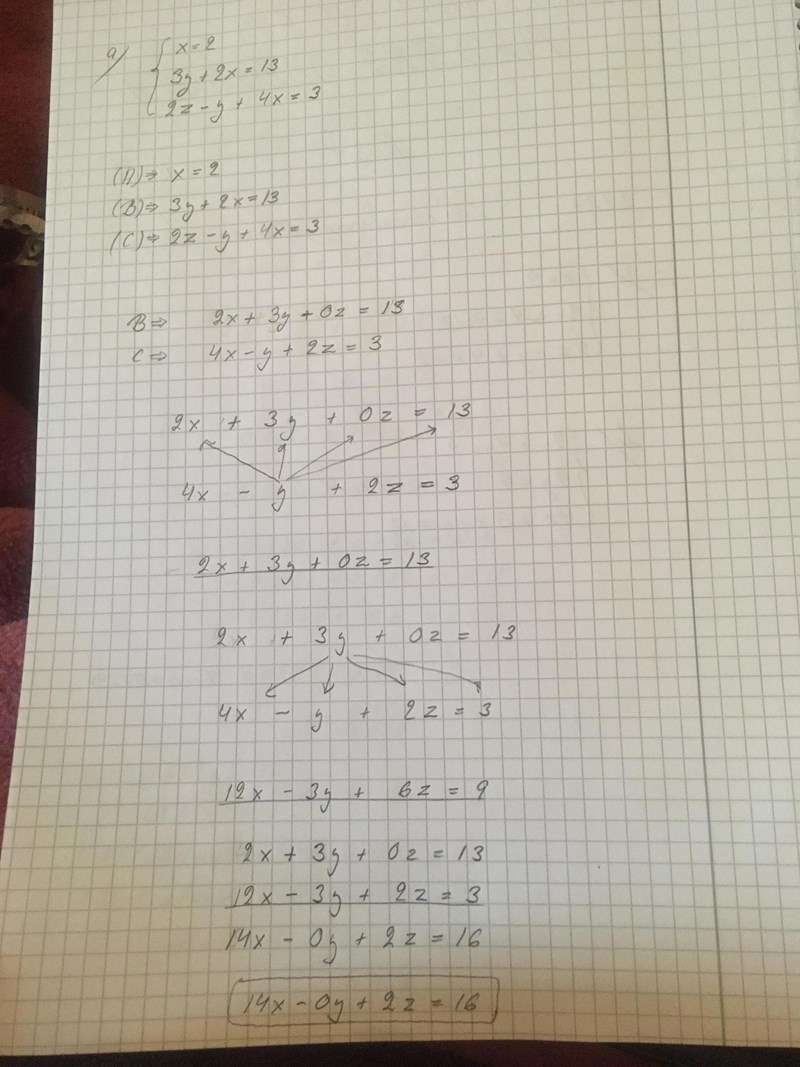 a) { x = 2
3y + 2x = 13
2z - y + 4x = 3
(A) ⇒ x = 2
(B) ⇒ 3y + 2x = 13
(C) ⇒ 2z - y + 4x = 3
B ⇒ 2x + 3y + 0z = 13
C ⇒ 4x - y + 2z = 3
2x + 3y + 0z = 13
4x - y + 2z = 3
2x + 3y + 0z = 13
2x + 3y + 0z = 13
4x - y + 2z = 3
12x - 3y + 6z = 9
2x + 3y + 0z = 13
12x - 3y + 2z = 3
14x - 0y + 2z = 16
14x - 0y + 2z = 16